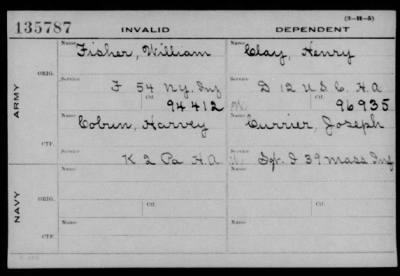 (3-H-5)
135787 INVALID DEPENDENT
Name Fisher, William Name Clay, Henry
ORIG.
Service F 54 N.Y. Inf Service D 12 U.S.C. H.A
ARMY
Ctf. 94412 Ctf. 96935
Name Coburn, Harvey Name Currier, Joseph
CTF.
Service K 2 Pa H.A Service Sgt. I 39 Mass Inf
NAVY
Name Name
ORIG.
Ctf. Ctf.
Name Name
CTF.